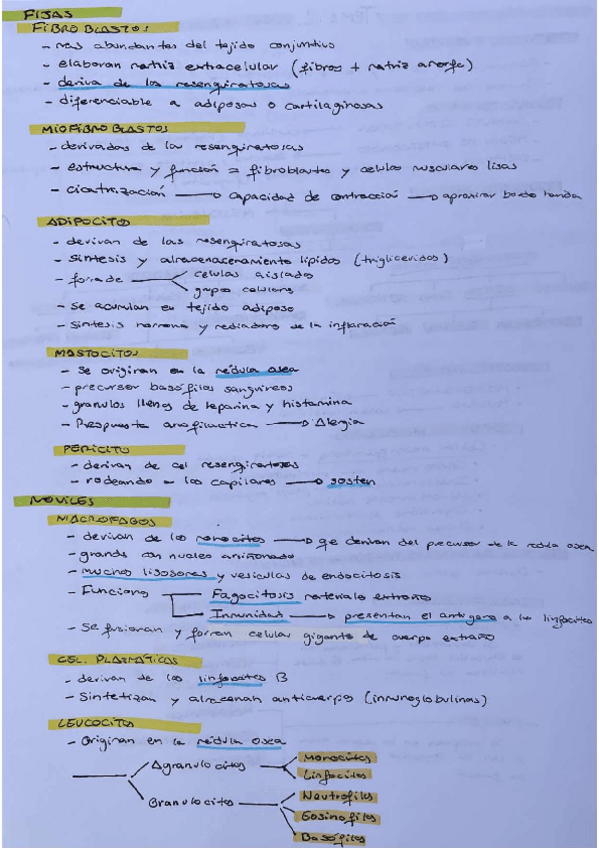 FIJAS
FIBROBLASTOS
- mas abundantes del tejido conjuntivo
- elaboran matriz extracelular (fibras + matriz amorfa)
- deriva de los mesenquimatosas
- diferenciable a adiposas o cartilaginosas
MIOFIBROBLASTOS
- derivadas de las mesenquimatosas
- estructura y función = fibroblastos y celulas musculares lisas
- cicatrización → capacidad de contracción → aproximar borde herida
ADIPOCITOS
- derivan de las mesenquimatosas
- Sintesis y almacenacenamiento lípidos (trigliceridos)
- forma de
celulas aislados
grupos celulares
- Se acumulan en tejido adiposo
- Sintesis hormona y mediadores de la inflamación
MASTOCITOS
- Se originan en la médula osea
- precursor basófilos sanguineos
- granulos llenos de heparina y histamina
- Respuesta anafilactica → Alergia
PERICITO
- derivan de cel mesenquimatosas
- rodeando a los capilares → sosten
MOVILES
MACROFAGOS
- derivan de los monocitos → que derivan del precursor de la medula osea
- grande con nucleo arriñonado
- muchos lisosomas y vesiculas de endocitosis
- Funciones
Fagocitosis materiales extraño
Inmunidad → presentan el antigeno a los linfocitos
- Se fusionan y forman celular gigante de cuerpo extraño
CEL. PLASMÁTICAS
- derivan de los linfocitos B
- Sintetizan y almacenan anticuerpo (inmunoglobulinas)
LEUCOCITO
- Originan en la médula osea
Agranulocitos
Monocitos
Linfocitos
Granulocitos
Neutrofilos
Eosinofilos
Basófilos